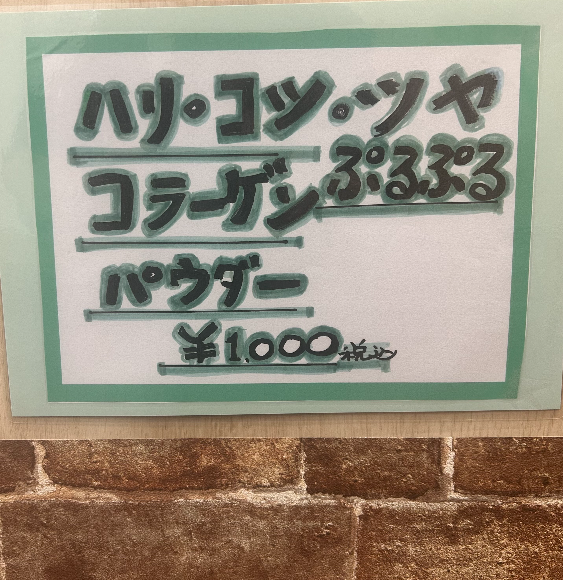 ハリ・コツ・ツヤ
ぷるぷる
コラーゲン
パウダー
¥1,000税込